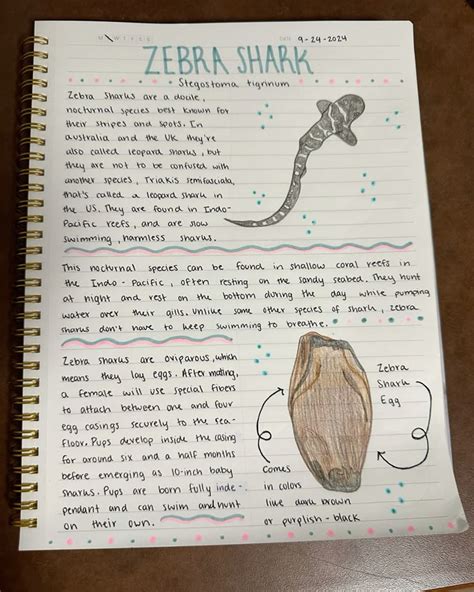 DATE 9-24-2024
ZEBRA SHARK
Stegostoma tigrinum
Zebra sharks are a docile,
nocturnal species best known for
their stripes and spots. In
australia and the UK they're
also called leopard sharks, but
they are not to be confused with
another species, Triakis semifasciata,
that's called a leopard shark in
the US. They are found in Indo-
Pacific reefs, and are slow
swimming, harmless sharks.
This nocturnal species can be found in shallow coral reefs in
the Indo-Pacific, often resting on the sandy seabed. They hunt
at night and rest on the bottom during the day while pumping
water over their gills. Unlike some other species of shark, zebra
sharks don't have to keep swimming to breathe.
Zebra sharks are oviparous, which
means they lay eggs. After mating,
a female will use special fibers
to attach between one and four
egg casings securely to the sea-
floor. Pups develop inside the casing
for around six and a half months
before emerging as 10-inch baby
sharks. Pups are born fully inde-
pendant and can swim and hunt
on their own.
Zebra
Shark
Egg
Comes
in colors
like dark brown
or purplish-black